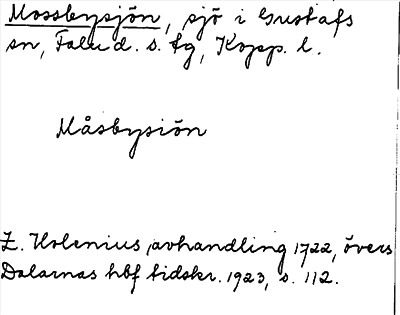 Mossbysjön, sjö i Gustafs
sn, Falu d. s. tg, Kopp. l.
Måsbysiön
Z. Holenius, avhandling 1722, övers
Dalarnas hbf tidskr. 1923, s. 112.